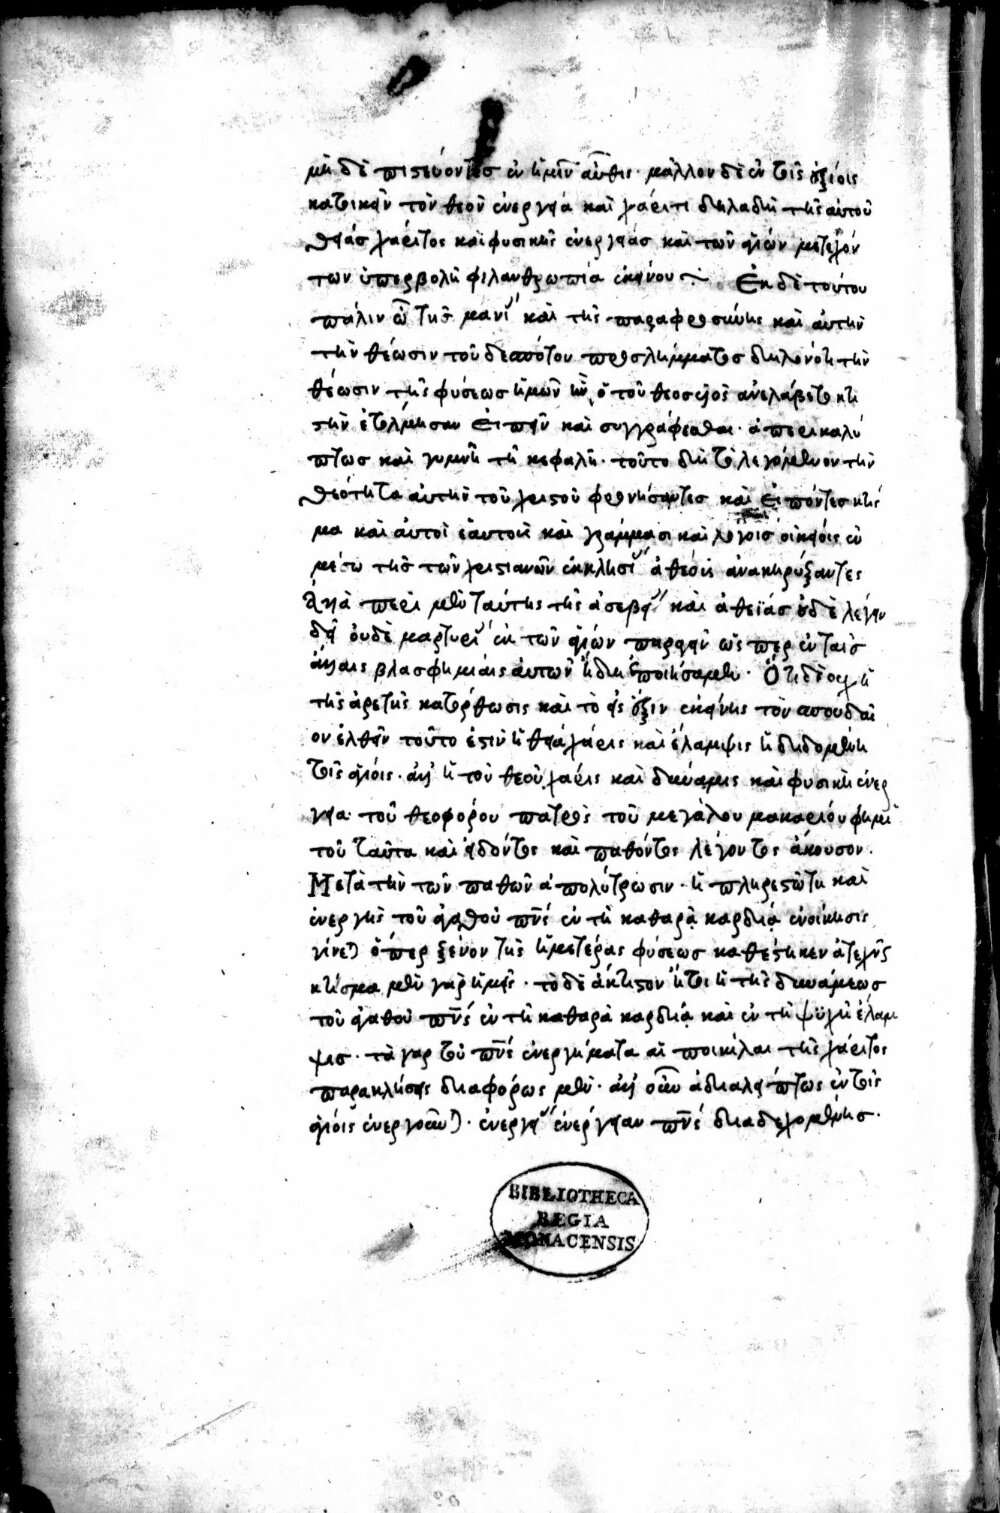 μὴ δὲ πιστεύοντες ἐν ἡμῖν αὖθις· μᾶλλον δὲ ἐν τοῖς ἀξίοις
κατοικεῖν τὸν θεὸν ἐνεργεία καὶ χάριτι δηλαδὴ τῆς αὐτοῦ
θείας χάριτος καὶ φυσικῆς ἐνεργείας καὶ τῶν ἁγίων μετεχόν
των ὑπερβολῆ φιλανθρωπία ἐκείνου Ἐκ δὲ τούτου
πάλιν ὢ τῆς μανίας καὶ τῆς παραφροσύνης καὶ αὐτὴν
τὴν θέωσιν τοῦ δεσπότου προσλήμματος δηλονότι τὴν
θέωσιν τῆς φύσεως ἡμῶν ἣν ὁ τοῦ θεοῦ ἀνελάβετο κτι
στὴν ἐτόλμησαν εἰπεῖν καὶ συγγράφεσθαι· ἀπερικαλύ
πτως καὶ γυμνῆ τῆ κεφαλῆ· τοῦτο δὴ τὸ λεγόμενον τὴν
θεότητα αὐτὴν τοῦ χριστοῦ φρονήσαντες καὶ εἰπόντες κτίσ
μα καὶ αὐτοὶ ἑαυτοὺς καὶ γράμμασι καὶ λόγοις οἰκείοις ἐν
μέσω τῆς τῶν χριστιανῶν ἐκκλησίας ἀθέους ἀνακηρύξαντες
Ἀλλὰ περὶ μὲν ταύτης τῆς ἀσεβείας καὶ ἀθεΐας οὐδὲ λέγειν
δεῖ οὐδὲ μαρτυρίας ἐκ τῶν ἁγίων παράγειν ὥσπερ ἐν ταῖς
ἄλλαις βλασφημίαις αὐτῶν ἤδη ἐποιήσαμεν· Ὅτι δὲ οὐχ ἡ
τῆς ἀρετῆς κατόρθωσις καὶ τὸ εἰς ἕξιν ἐκείνης τὸν σπουδαῖ
ον ἐλθεῖν τοῦτο ἐστὶν ἡ θεία χάρις καὶ ἔλαμψις ἡ διδομένη
τοῖς ἁγίοις· ἀλλ' ἡ τοῦ θεοῦ χάρις καὶ δύναμις καὶ φυσικὴ ἐνέρ
γεια· τοῦ θεοφόρου πατρὸς τοῦ μεγάλου μακαρίου φημὶ
τοῦ ταῦτα καὶ εἰδότος καὶ παθόντος λέγοντος ἄκουσον·
Μετὰ τὴν τῶν παθῶν ἀπολύτρωσιν· ἡ πληρεστάτη καὶ
ἐνεργὴς τοῦ ἀγαθοῦ πνς ἐν τῆ καθαρᾷ καρδίᾳ ἐνοίκησις
γίνεται ὅπερ ξένον τῆς ἡμετέρας φύσεως καθέστηκεν ἀτεχνῶς
κτίσμα μὲν γὰρ ἡμεῖς· τὸ δὲ ἄκτιστον ἤτοι ἡ τῆς δυνάμεως
τοῦ ἀγαθοῦ πνς ἐν τῆ καθαρᾷ καρδίᾳ καὶ ἐν τῆ ψυχῆ ἔλαμ
ψις· τὰ γὰρ τοῦ πνς ἐνεργήματα αἱ ποικίλαι τῆς χάριτος
παρακλήσεις διαφόρως μὲν· ἀλλ' οὖν ἀδιαλείπτως ἐν τοῖς
ἁγίοις ἐνεργοῦνται· ἐνεργείας ἐνέργειαν πνς διαδεχομένης·
BIBLIOTHECA
REGIA
MONACENSIS